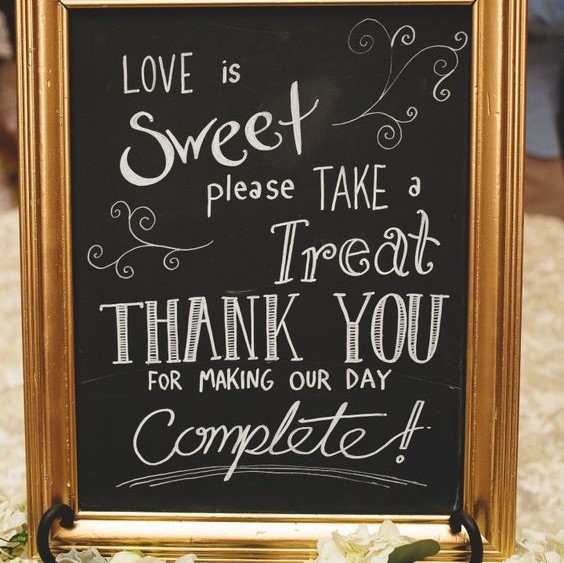 LOVE is
Sweet
please TAKE a
Treat
THANK YOU
FOR MAKING OUR DAY
Complete!